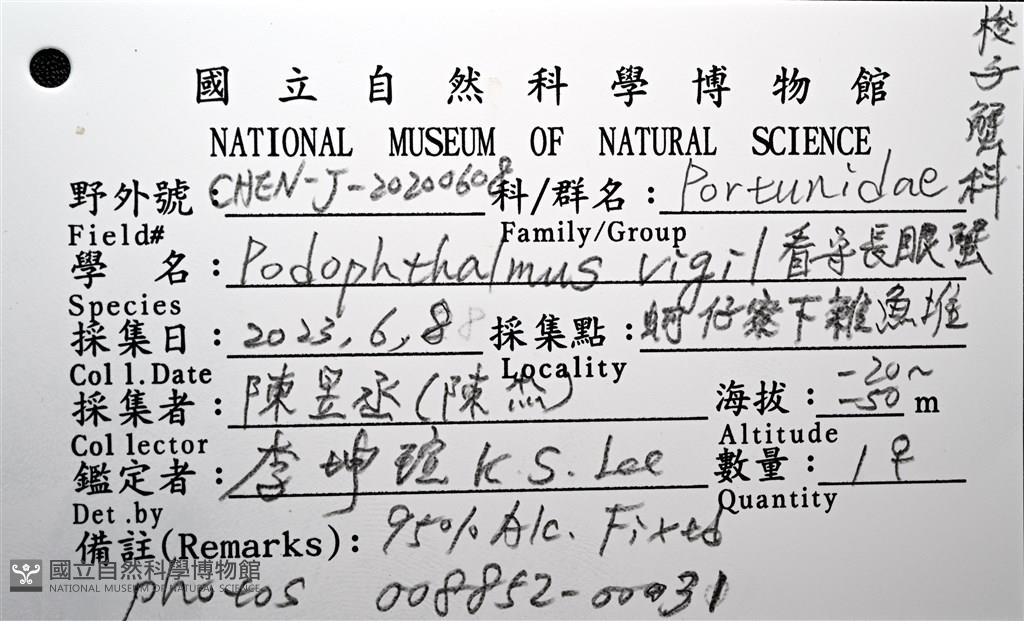 國立自然科學博物館
NATIONAL MUSEUM OF NATURAL SCIENCE
梭子蟹科
野外號：CHEN-J-20200608 科/群名：Portunidae
Field# Family/Group
學名：Podophthalmus vigil 看守長眼蟹
Species
採集日：2023,6,8 採集點：蚵仔寮下雜魚堆
Coll.Date Locality
採集者：陳昱丞(陳杰) 海拔：-20~-50 m
Collector Altitude
鑑定者：李坤瑄 K.S.Lee 數量：1♀
Det.by Quantity
備註(Remarks)：95% Alc. Fixed
photos 008852-00031
國立自然科學博物館
NATIONAL MUSEUM OF NATURAL SCIENCE